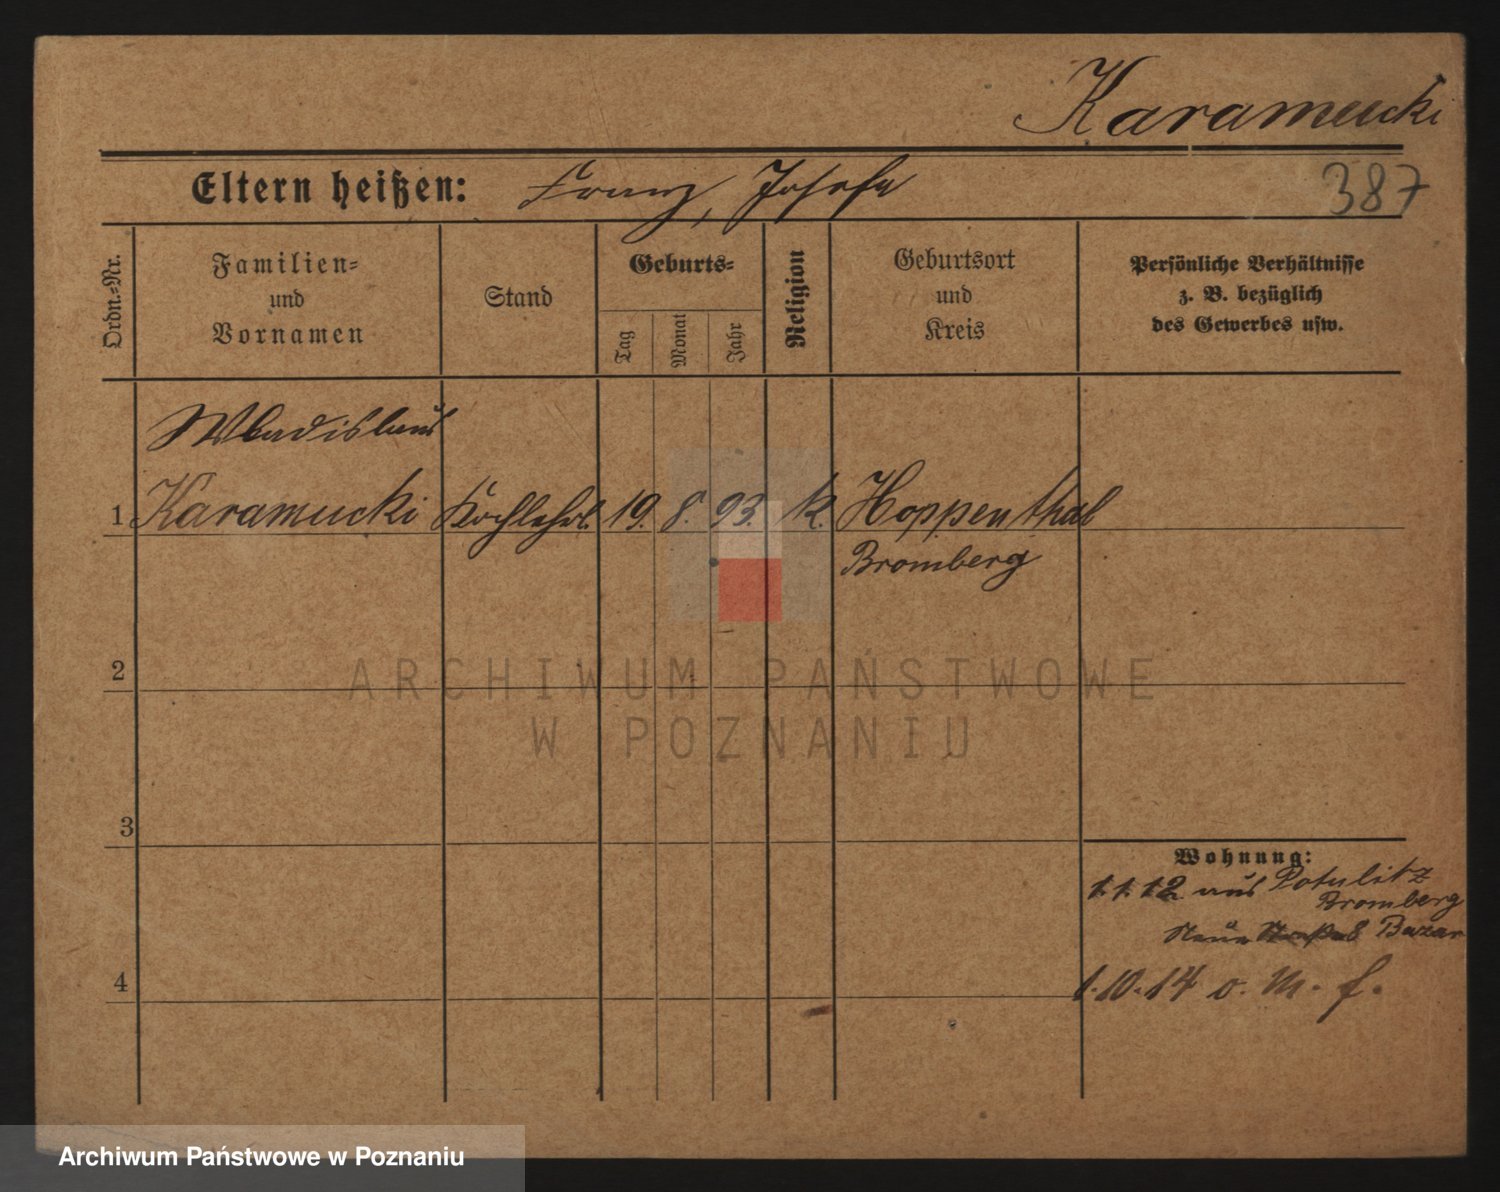 Karamucki
Eltern heißen: Franz, Josefa
387
Ordn.-Nr.
Familien-
und
Vornamen
Stand
Geburts-
Tag
Monat
Jahr
Religion
Geburtsort
und
Kreis
Persönliche Verhältnisse
z. B. bezüglich
des Gewerbes usw.
Wladislaus
1. Karamucki Kochlehrl. 19. 8. 93. k. Hoppenthal
Bromberg
2
ARCHIWUM PAŃSTWOWE
W POZNANIU
3
Wohnung:
1.1.12 aus Potulitz
Bromberg
Neue Straße 8 Bazar
4
1.10.14 o. M. f.
Archiwum Państwowe w Poznaniu